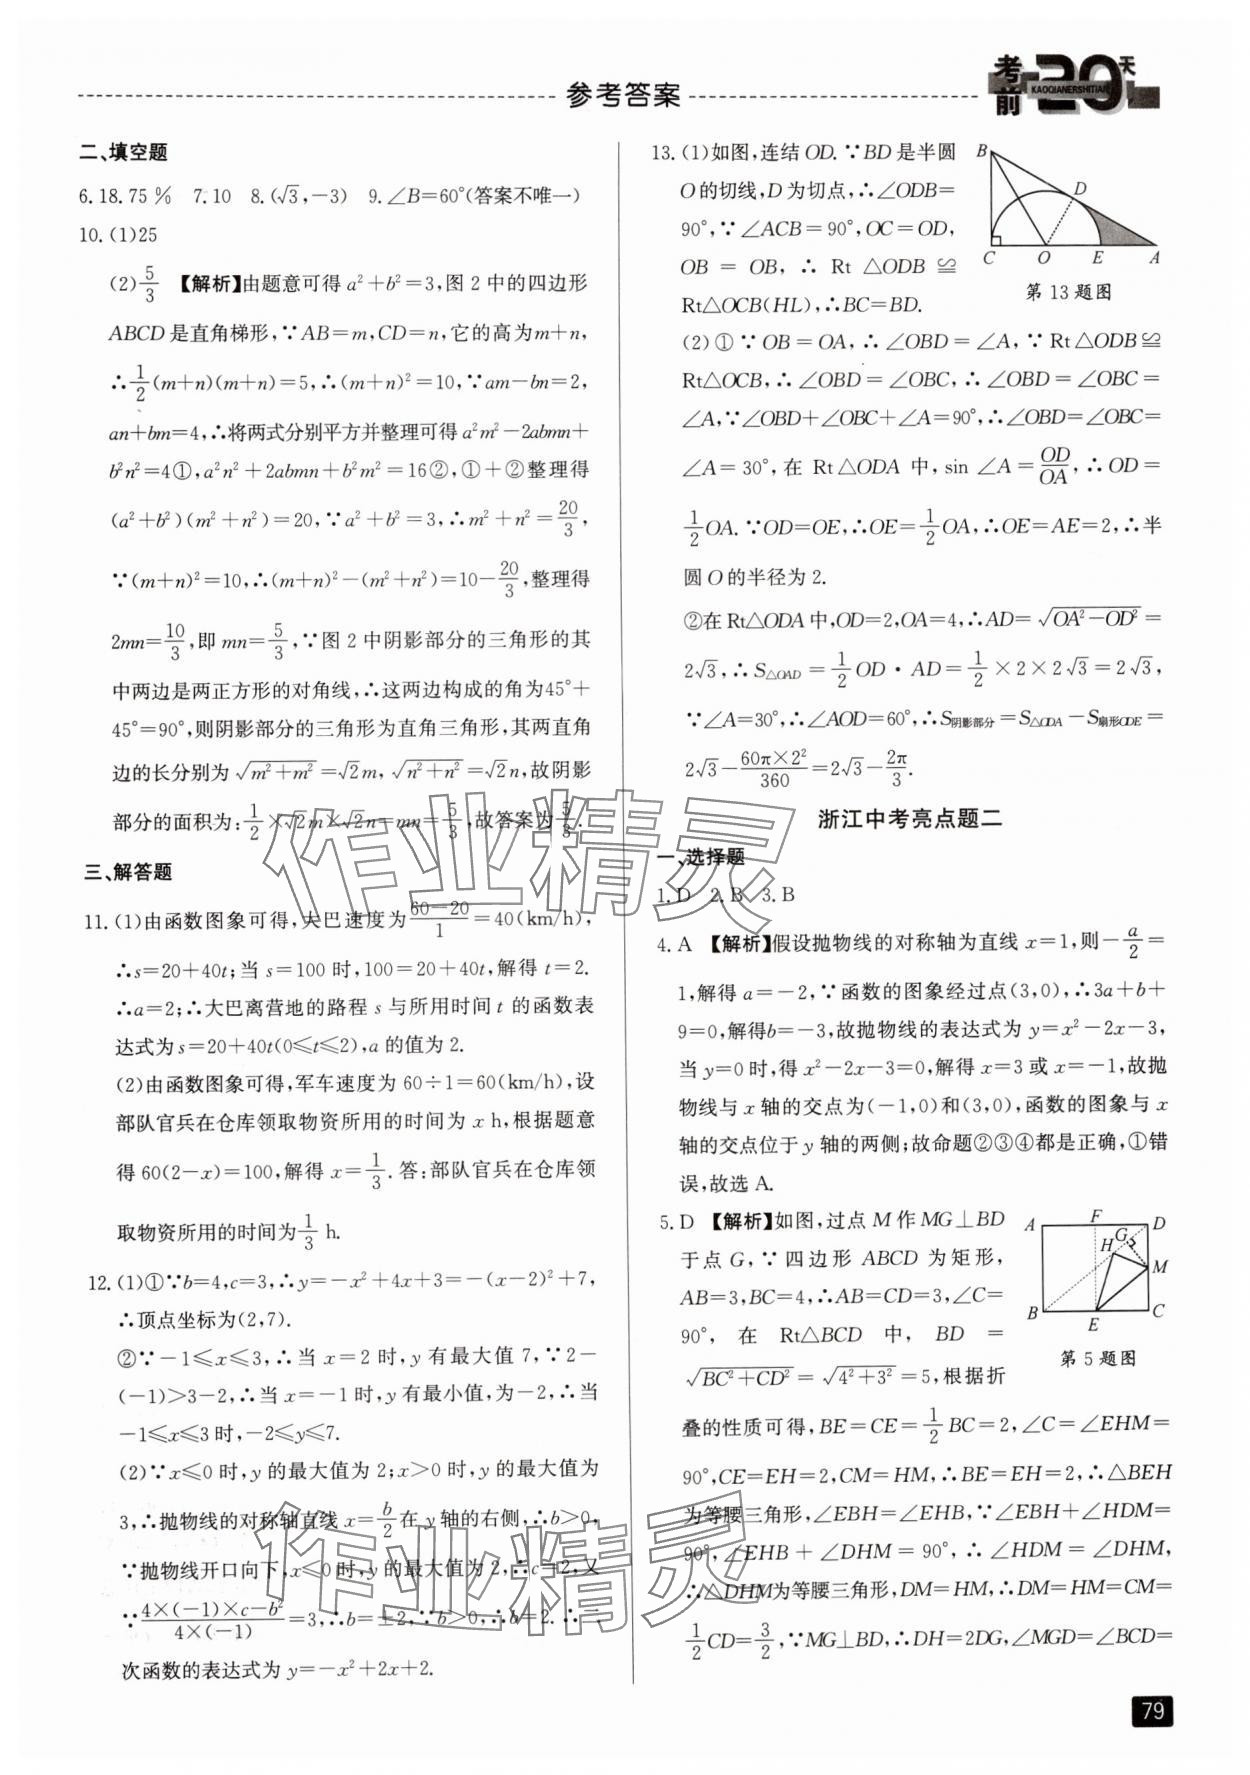 参考答案
考前
20天
KAOQIANERSHITIAN
二、填空题
6.18.75％　7.10　8.(√3,−3)　9.∠B=60°(答案不唯一)
10.(1)25
(2)5/3　【解析】由题意可得a²+b²=3,图2中的四边形
ABCD是直角梯形,∵AB=m,CD=n,它的高为m+n,
∴1/2(m+n)(m+n)=5,∴(m+n)²=10,∵am−bn=2,
an+bm=4,∴将两式分别平方并整理可得a²m²−2abmn+
b²n²=4①,a²n²+2abmn+b²m²=16②,①+②整理得
(a²+b²)(m²+n²)=20,∵a²+b²=3,∴m²+n²=20/3,
∵(m+n)²=10,∴(m+n)²−(m²+n²)=10−20/3,整理得
2mn=10/3,即mn=5/3,∵图2中阴影部分的三角形的其
中两边是两正方形的对角线,∴这两边构成的角为45°+
45°=90°,则阴影部分的三角形为直角三角形,其两直角
边的长分别为√(m²+m²)=√2m,√(n²+n²)=√2n,故阴影
部分的面积为:1/2×√2m×√2n=mn=5/3,故答案为5/3.
三、解答题
11.(1)由函数图象可得,大巴速度为(60−20)/1=40(km/h),
∴s=20+40t;当s=100时,100=20+40t,解得t=2.
∴a=2;∴大巴离营地的路程s与所用时间t的函数表
达式为s=20+40t(0≤t≤2),a的值为2.
(2)由函数图象可得,军车速度为60÷1=60(km/h),设
部队官兵在仓库领取物资所用的时间为x h,根据题意
得60(2−x)=100,解得x=1/3.答:部队官兵在仓库领
取物资所用的时间为1/3 h.
12.(1)①∵b=4,c=3,∴y=−x²+4x+3=−(x−2)²+7,
∴顶点坐标为(2,7).
②∵−1≤x≤3,∴当x=2时,y有最大值7,∵2−
(−1)>3−2,∴当x=−1时,y有最小值,为−2,∴当
−1≤x≤3时,−2≤y≤7.
(2)∵x≤0时,y的最大值为2;x>0时,y的最大值为
3,∴抛物线的对称轴直线x=b/2在y轴的右侧,∴b>0,
∵抛物线开口向下,x≤0时,y的最大值为2,∴c=2,又
∵(4×(−1)×c−b²)/(4×(−1))=3,∴b=±2,∵b>0,∴b=2.∴二
次函数的表达式为y=−x²+2x+2.
13.(1)如图,连结OD.∵BD是半圆
O的切线,D为切点,∴∠ODB=
90°,∵∠ACB=90°,OC=OD,
OB=OB,∴Rt△ODB≌
Rt△OCB(HL),∴BC=BD.
B
D
C O E A
第13题图
(2)①∵OB=OA,∴∠OBD=∠A,∵Rt△ODB≌
Rt△OCB,∴∠OBD=∠OBC,∴∠OBD=∠OBC=
∠A,∵∠OBD+∠OBC+∠A=90°,∴∠OBD=∠OBC=
∠A=30°,在Rt△ODA中,sin∠A=OD/OA,∴OD=
1/2OA.∵OD=OE,∴OE=1/2OA,∴OE=AE=2,∴半
圆O的半径为2.
②在Rt△ODA中,OD=2,OA=4,∴AD=√(OA²−OD²)=
2√3,∴S△OAD=1/2OD·AD=1/2×2×2√3=2√3,
∵∠A=30°,∴∠AOD=60°,∴S阴影部分=S△ODA−S扇形ODE=
2√3−(60π×2²)/360=2√3−2π/3.
浙江中考亮点题二
一、选择题
1.D　2.B　3.B
4.A　【解析】假设抛物线的对称轴为直线x=1,则−a/2=
1,解得a=−2,∵函数的图象经过点(3,0),∴3a+b+
9=0,解得b=−3,故抛物线的表达式为y=x²−2x−3,
当y=0时,得x²−2x−3=0,解得x=3或x=−1,故抛
物线与x轴的交点为(−1,0)和(3,0),函数的图象与x
轴的交点位于y轴的两侧;故命题②③④都是正确,①错
误,故选A.
5.D　【解析】如图,过点M作MG⊥BD
于点G,∵四边形ABCD为矩形,
AB=3,BC=4,∴AB=CD=3,∠C=
90°,在Rt△BCD中,BD=
√(BC²+CD²)=√(4²+3²)=5,根据折
A F D
H G
M
B E C
第5题图
叠的性质可得,BE=CE=1/2BC=2,∠C=∠EHM=
90°,CE=EH=2,CM=HM,∴BE=EH=2,∴△BEH
为等腰三角形,∠EBH=∠EHB,∵∠EBH+∠HDM=
90°,∠EHB+∠DHM=90°,∴∠HDM=∠DHM,
∴△DHM为等腰三角形,DM=HM,∴DM=HM=CM=
1/2CD=3/2,∵MG⊥BD,∴DH=2DG,∠MGD=∠BCD=
79
作业精灵
作业精灵